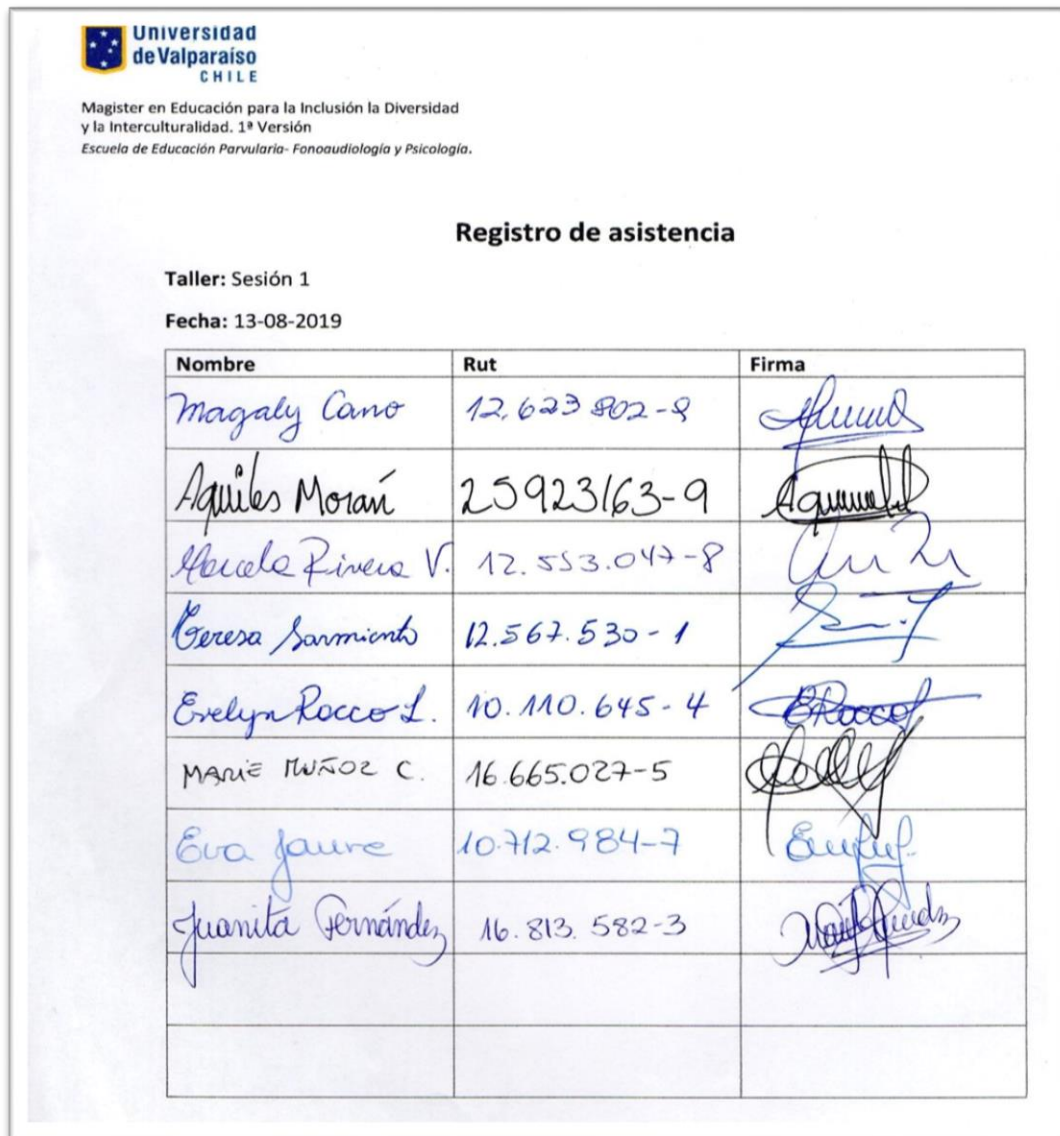 Universidad
de Valparaíso
CHILE
Magister en Educación para la Inclusión la Diversidad
y la Interculturalidad. 1ª Versión
Escuela de Educación Parvularia- Fonoaudiología y Psicología.
Registro de asistencia
Taller: Sesión 1
Fecha: 13-08-2019
Nombre Rut Firma
Magaly Cano 12.623802-8
Aquiles Morán 25923163-9
Marcela Rivera V. 12.553.047-8
Teresa Sarmiento 12.567.530-1
Evelyn Rocco L. 10.110.645-4 ERocco
MARIE MUÑOZ C. 16.665.027-5
Eva Jaure 10.712.984-7
Juanita Fernández 16.813.582-3